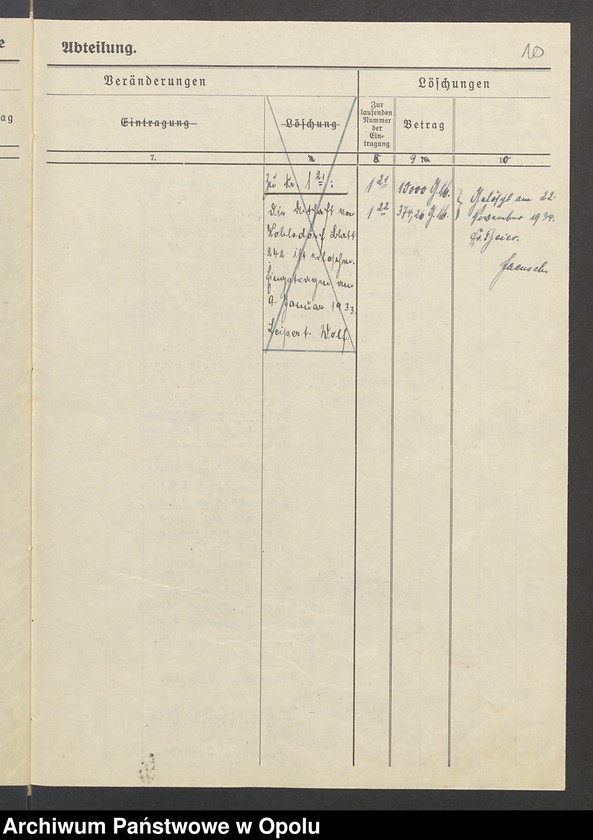 Abteilung.
10
Veränderungen
Löschungen
Eintragung
Löschung
Zur
laufenden
Nummer
der
Ein-
tragung
Betrag
7.
8.
9
10
Zu Nr. 1 21:
Die Mithaft von
Blatt
242 ist erloschen.
Eingetragen am
9. Januar 1933.
Wolf
1 21 10000 G.M.
1 22 374,26 G.M.
Gelöscht am 22.
November 1934.
ag
Archiwum Państwowe w Opolu